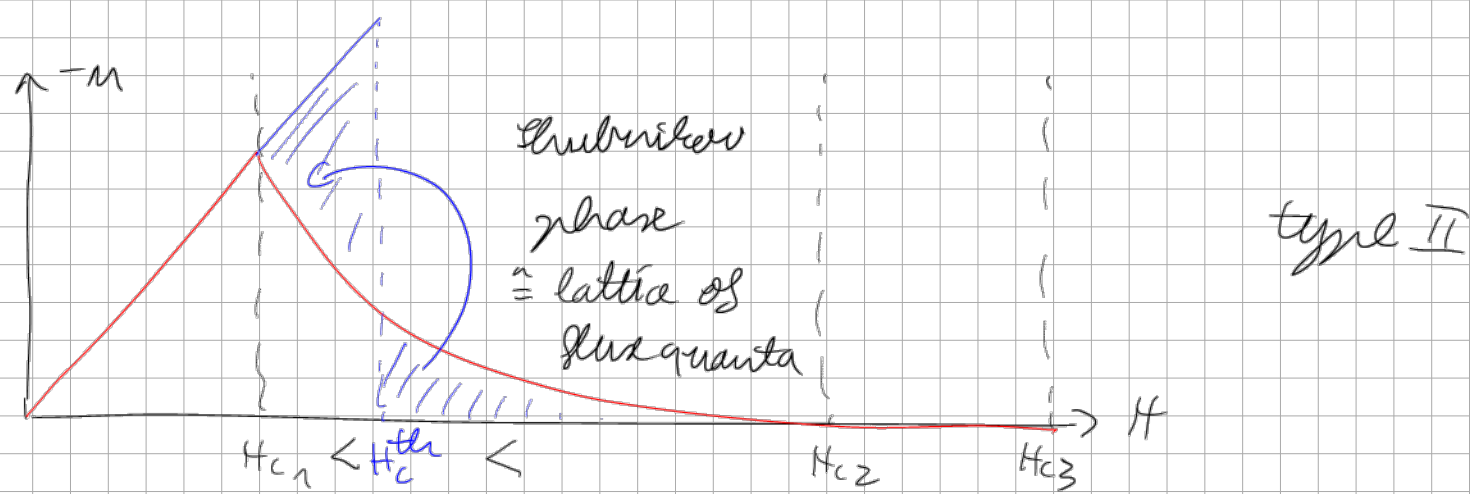 -M
Shubnikov
phase
≙ lattice of
fluxquanta
type II
H
Hc1 < Hcth < Hc2 Hc3